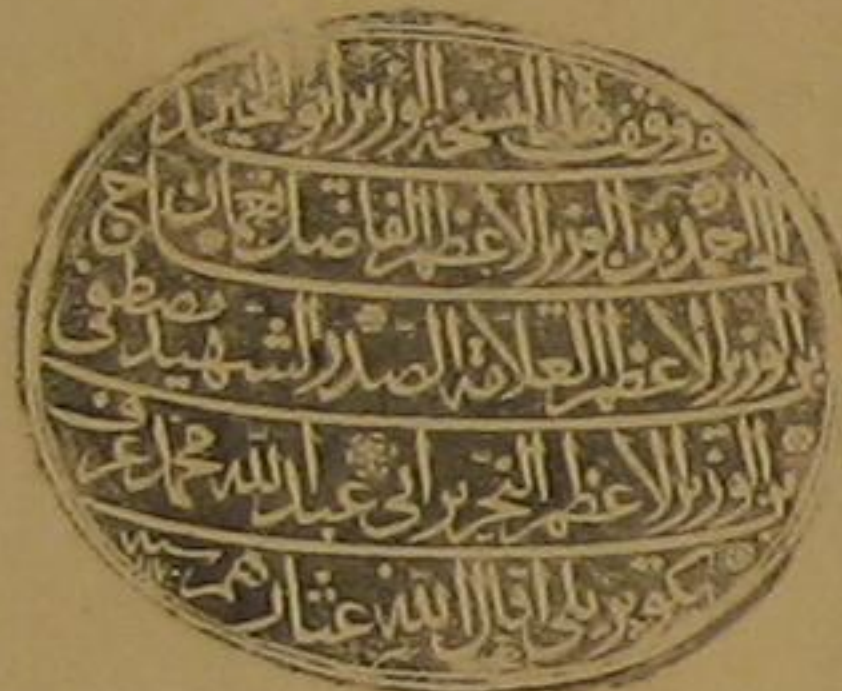 وقف هذه النسخة الوزير ابو الخير
الحاج احمد بن الوزير الاعظم الفاضل نعمان
بن الوزير الاعظم العلامة الصدر الشهيد مصطفى
بن الوزير الاعظم النحرير ابي عبد الله محمد عرف
بكوبريلي اقال الله عثارهم سنة